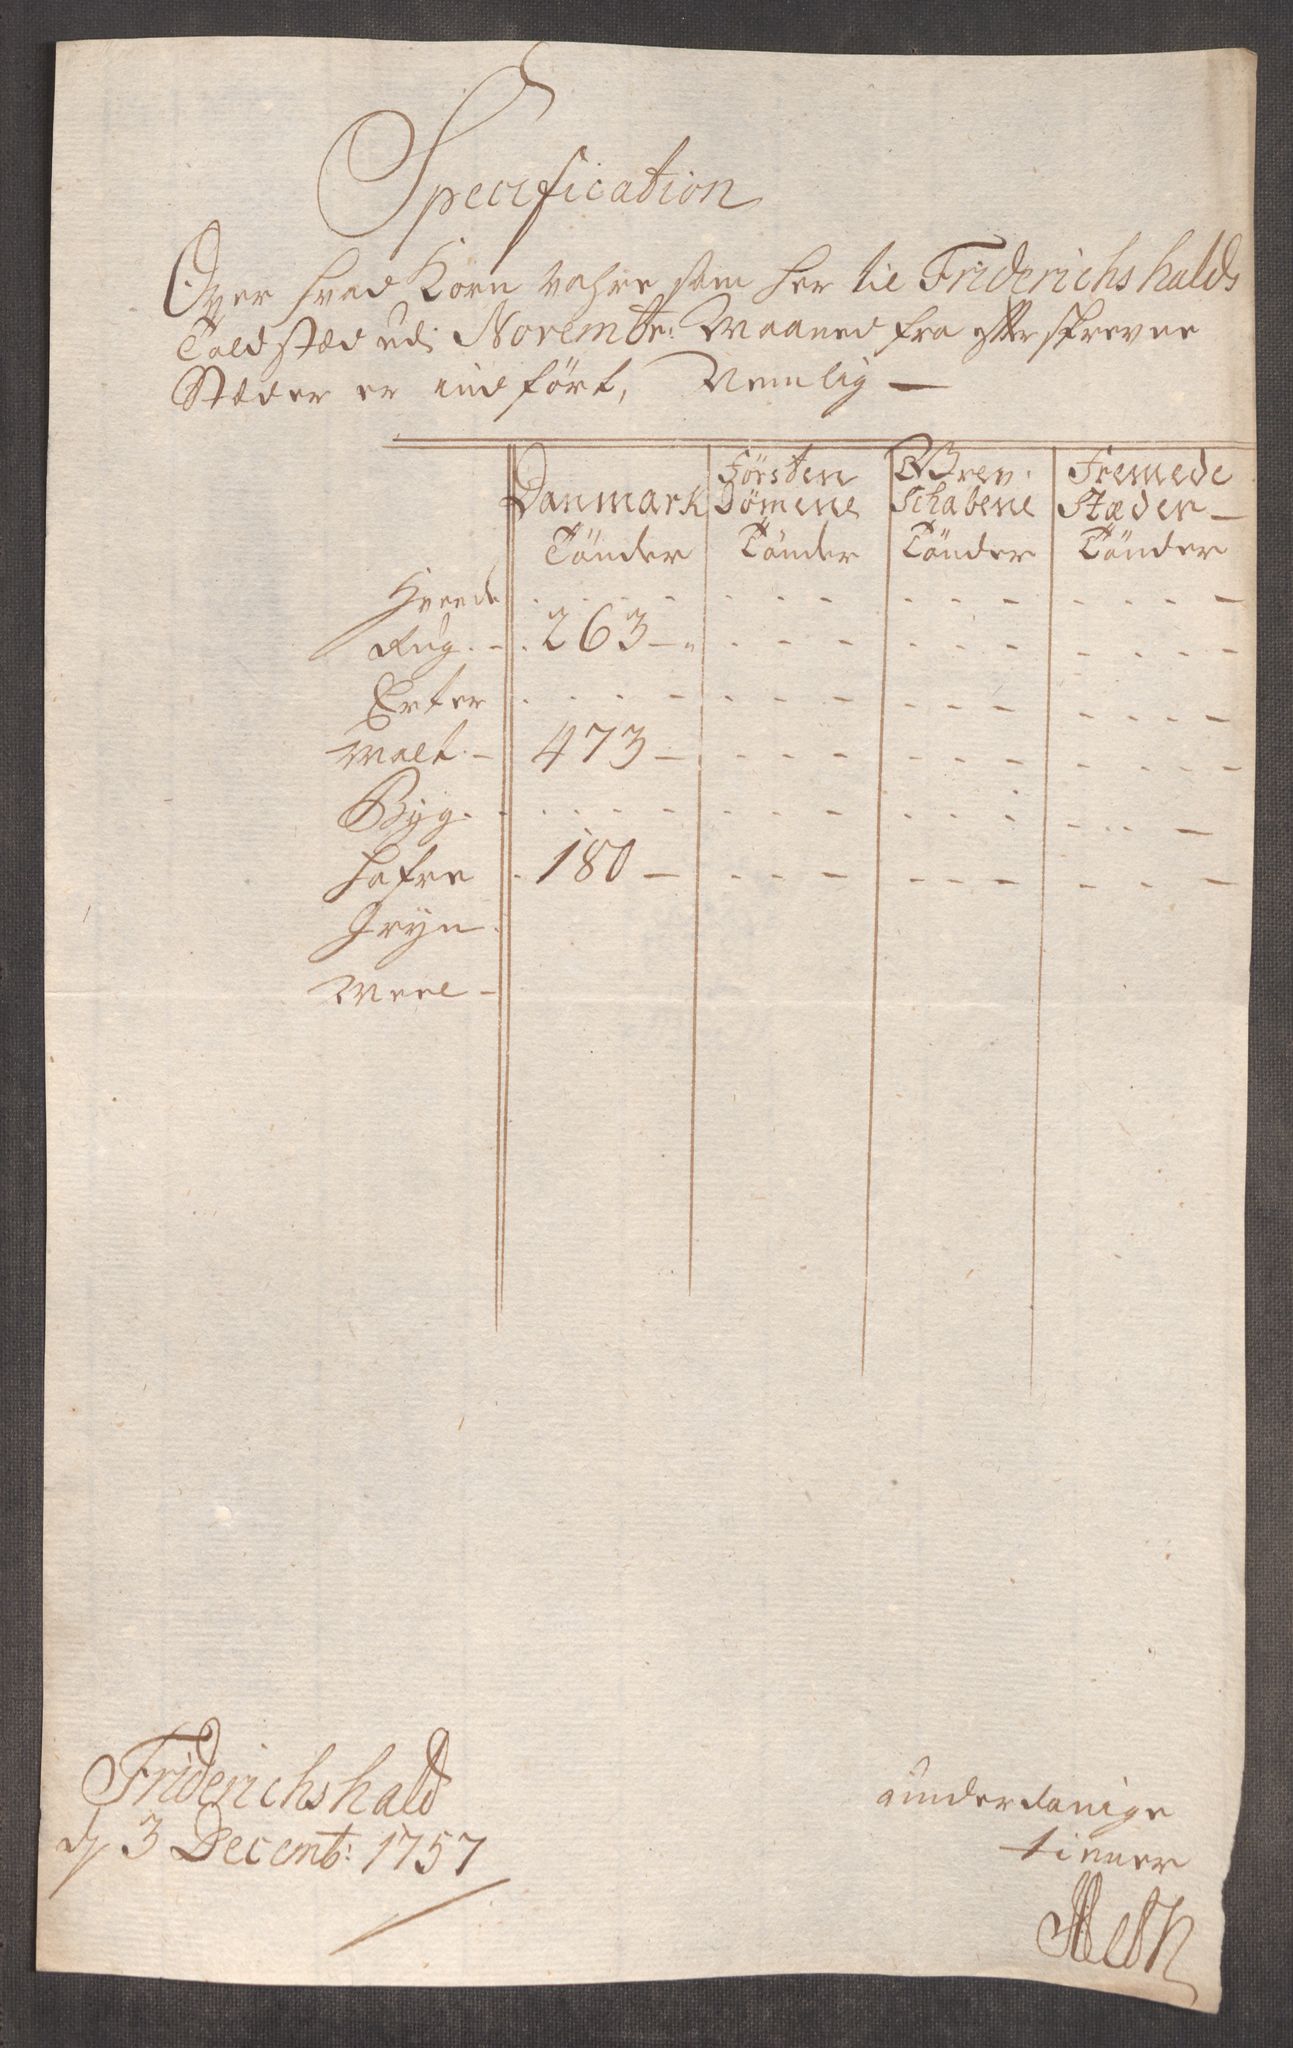 Specification
Over hvad Korn vahre som her til Friderichshalds
Toldstæd udi Novembr: Maaned fra efterskrevne
Stæder er indført, Nemlig —
Danmark Försten Grev: Fremede
Dömene Schabene Stæder —
Tönder Tönder Tönder Tönder
Hvede
Rug. - . 263 — „
Erter
Malt. - 473 —
Byg.
Hafre . 180 —
Gryn.
Meel -
Friderichshald
d 3 Decemb: 1757
underdanige
tiener